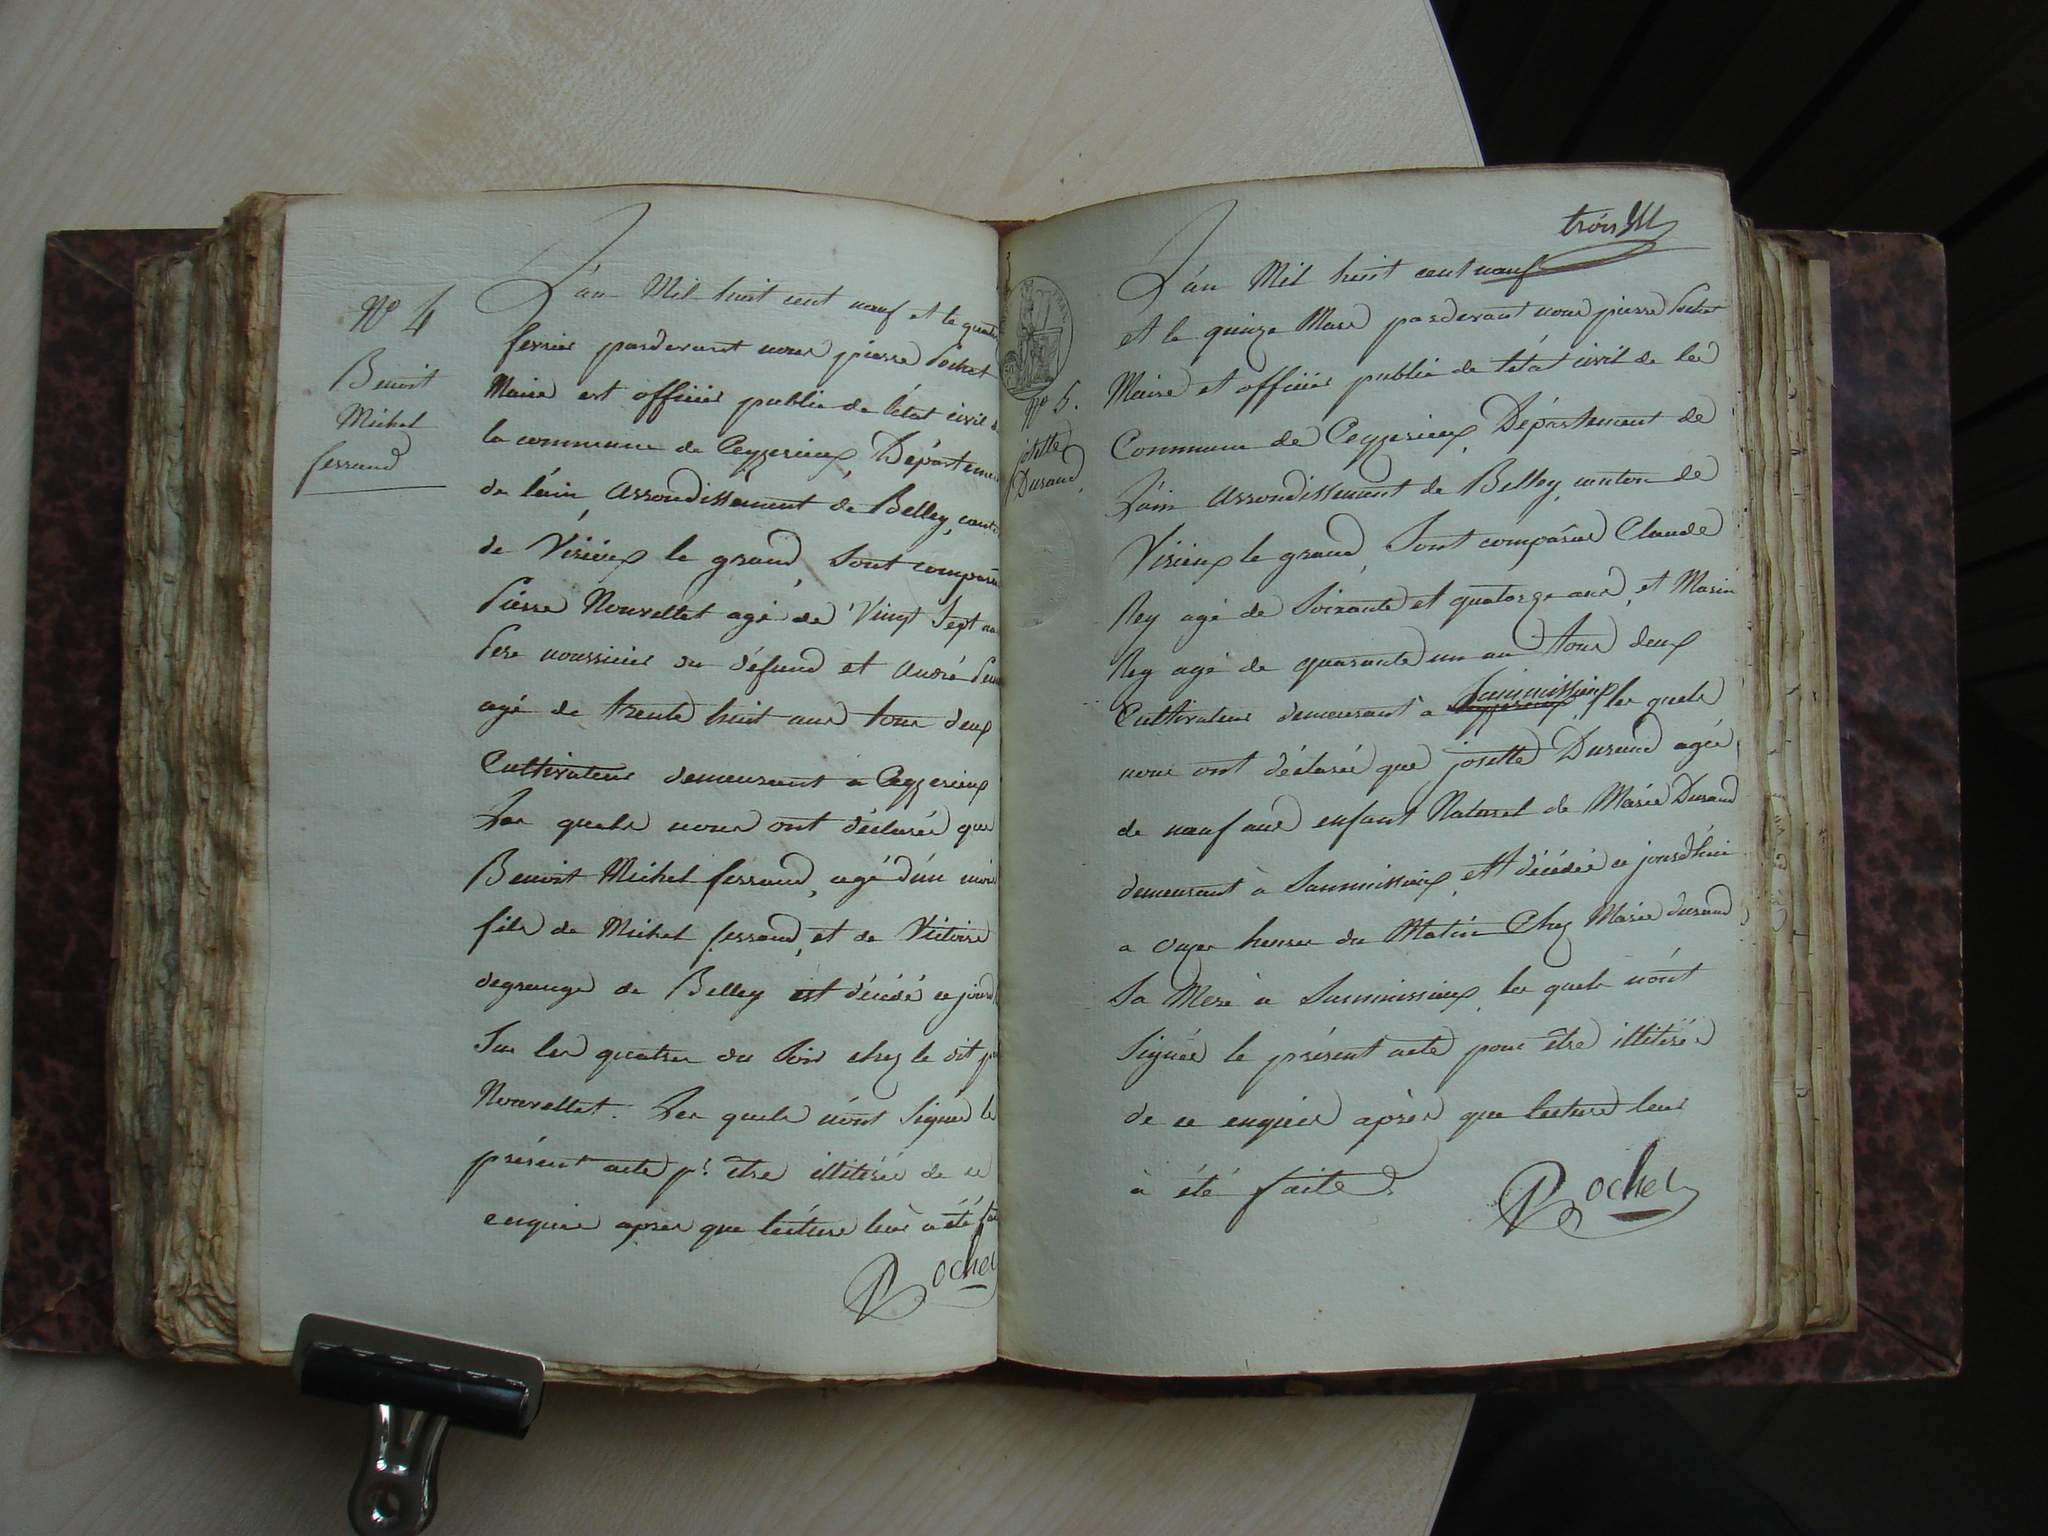 N° 4
Benoit
Michel
ferrand
L'an Mil huit cent neuf et le quatre
fevrier pardevant nous pierre Rochet
Maire est officier public de l'état civil de
la commune de Ceyzerieux, Département
de l'ain, Arrondissement de Belley, canton
de Virieux le grand, Sont comparus
Pierre Nouvellet agé de Vingt Sept ans
Pere nourricier du défund et André
agé de trente huit ans tous deux
Cultivateurs demeurant a Ceyzerieux
Les quels nous ont déclarés que
Benoit Michel ferrand, agé d'un mois
fils de Michel ferrand, et de Victoire
degrange de Belley est décédé ce jourd
Sur les quatres du Soir chez le dit
Nouvellet. Les quels n'ont Signés le
présent acte pr. être illitérés de ce
enquis après que lecture leur a été
Rochet
trois
N° 5.
josette
Durand,
L'an Mil huit cent neuf
et le quinze Mars pardevant nous pierre Rochet
Maire et officier public de l'état civil de la
Commune de Ceyzerieux, Département de
L'ain Arrondissement de Belley, canton de
Virieux le grand, Sont comparus Claude
Rey agé de Soixante et quatorze ans, et Marin
Rey agé de quarante un an tous deux
Cultivateurs demeurant à Sanmissieux les quels
nous ont déclarés que josette Durand agée
de neuf ans enfant Naturel de Marie Durand
demeurant à Sanmissieux, est décédée ce jourd'hui
a onze heures du Matin Chez Marie durand
Sa Mere à Sanmissieux, les quels n'ont
Signés le présent acte pour être illitérés
de ce enquis après que lecture leur
à été faite.
Rochet